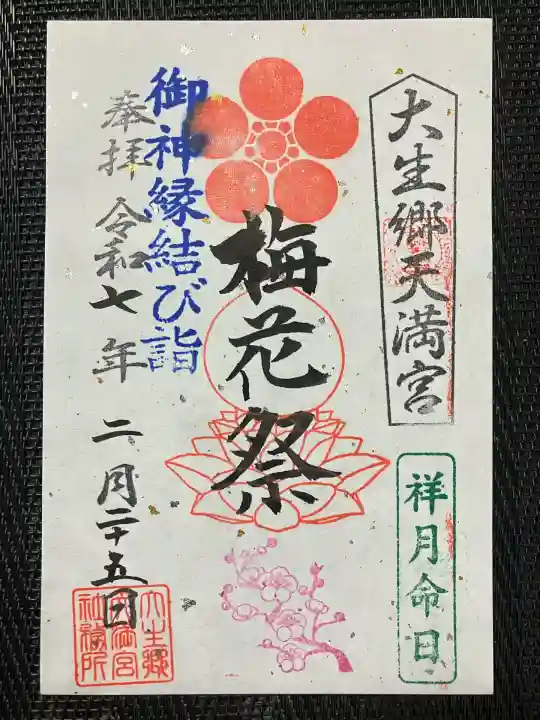 大生郷天満宮
祥月命日
梅花祭
御神縁結び詣
奉拝 令和七年 二月二十五日
大生郷天満宮社務所